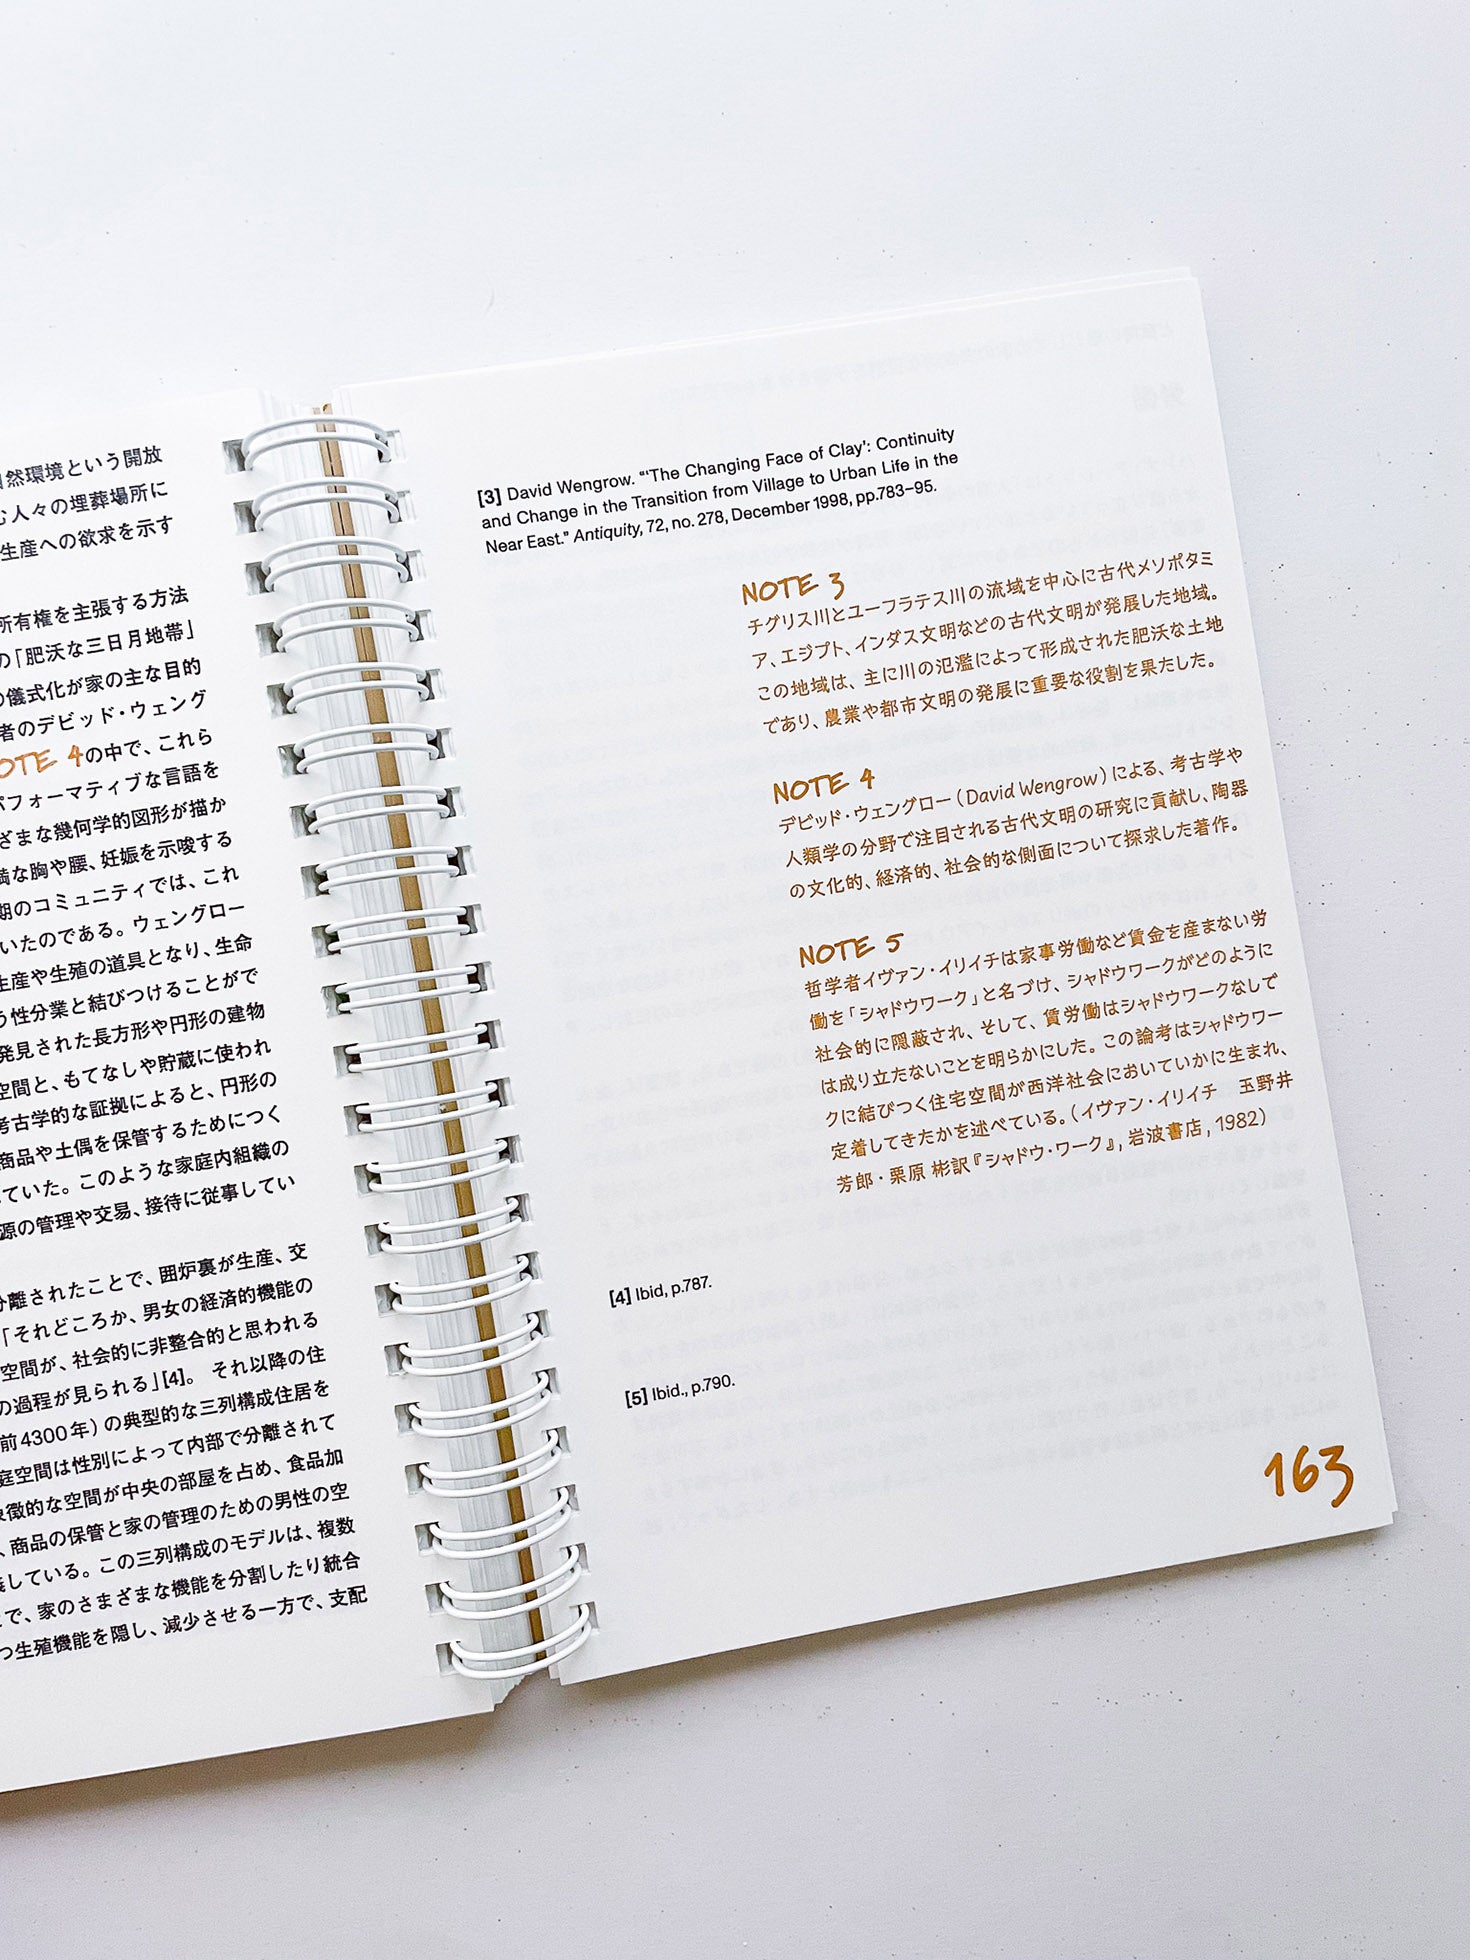 然環境という開放
人々の埋葬場所に
生産への欲求を示す
所有権を主張する方法
の「肥沃な三日月地帯」
の儀式化が家の主な目的
者のデビッド・ウェング
OTE 4の中で、これら
パフォーマティブな言語を
ざまな幾何学的図形が描か
満な胸や腰、妊娠を示唆する
期のコミュニティでは、これ
いたのである。ウェングロー
生産や生殖の道具となり、生命
う性分業と結びつけることがで
発見された長方形や円形の建物
空間と、もてなしや貯蔵に使われ
考古学的な証拠によると、円形の
商品や土偶を保管するためにつく
ていた。このような家庭内組織の
源の管理や交易、接待に従事してい
分離されたことで、囲炉裏が生産、交
「それどころか、男女の経済的機能の
空間が、社会的に非整合的と思われる
の過程が見られる」[4]。 それ以降の住
前4300年）の典型的な三列構成住居を
庭空間は性別によって内部で分離されて
象徴的な空間が中央の部屋を占め、食品加
、商品の保管と家の管理のための男性の空
している。この三列構成のモデルは、複数
で、家のさまざまな機能を分割したり統合
つ生殖機能を隠し、減少させる一方で、支配
[3] David Wengrow. “‘The Changing Face of Clay’: Continuity
and Change in the Transition from Village to Urban Life in the
Near East.” Antiquity, 72, no. 278, December 1998, pp.783–95.
NOTE 3
チグリス川とユーフラテス川の流域を中心に古代メソポタミ
ア、エジプト、インダス文明などの古代文明が発展した地域。
この地域は、主に川の氾濫によって形成された肥沃な土地
であり、農業や都市文明の発展に重要な役割を果たした。
NOTE 4
デビッド・ウェングロー（David Wengrow）による、考古学や
人類学の分野で注目される古代文明の研究に貢献し、陶器
の文化的、経済的、社会的な側面について探求した著作。
NOTE 5
哲学者イヴァン・イリイチは家事労働など賃金を産まない労
働を「シャドウワーク」と名づけ、シャドウワークがどのように
社会的に隠蔽され、そして、賃労働はシャドウワークなしで
は成り立たないことを明らかにした。この論考はシャドウワー
クに結びつく住宅空間が西洋社会においていかに生まれ、
定着してきたかを述べている。（イヴァン・イリイチ　玉野井
芳郎・栗原 彬訳『シャドウ・ワーク』, 岩波書店, 1982）
[4] Ibid, p.787.
[5] Ibid., p.790.
163